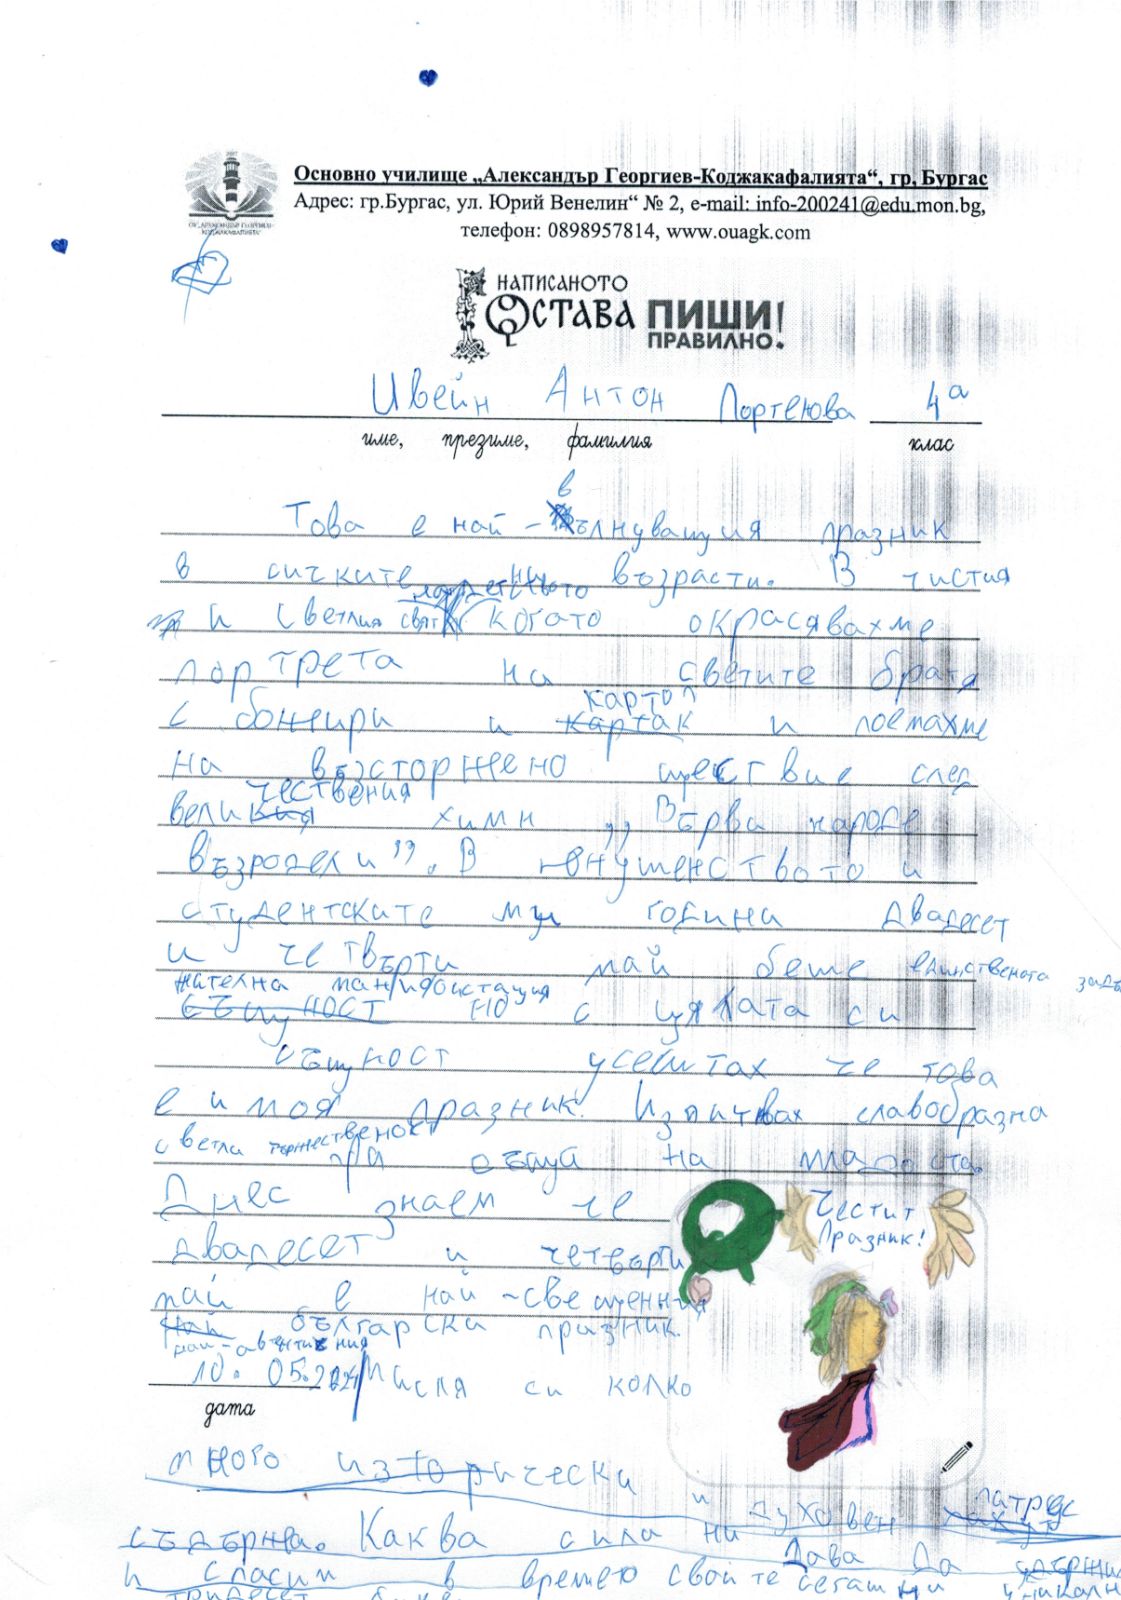 ОУ "АЛЕКСАНДЪР ГЕОРГИЕВ-
КОДЖАКАФАЛИЯТА"
Основно училище „Александър Георгиев-Коджакафалията“, гр. Бургас
Адрес: гр.Бургас, ул. Юрий Венелин“ № 2, e-mail: info-200241@edu.mon.bg,
телефон: 0898957814, www.ouagk.com
НАПИСАНОТО
ОСТАВА ПИШИ
ПРАВИЛНО!
Ивейн Антон Портенова 4а
име, презиме, фамилия клас
в
Това е най-вълнуващия празник
в сичките ни възрасти. В чистия
и светлия свят когато окрасявахме
портрета на светите братя
картоп
с божири и картак и поемахме
на възторжено шествие след
чествения
великия химн „Върви народе
възродени”. В юнушенството и
студентските ми години двадесет
и четвърти май беше единствената задъ
жителна
същност но с цялата си
същност усештах че това
е и моя празник. Изпитвах славобразна
светла тържественост
на младоста.
Днес знаем че
двадесет и четвърти
май е най-свещенния
най български празник.
10. 05. Мисля си колко
дата
Честит
Празник!
много изторически
и духовен
съдържа. Каква сила ни дава да
и спасим в времето свойте сегашни
тридесет